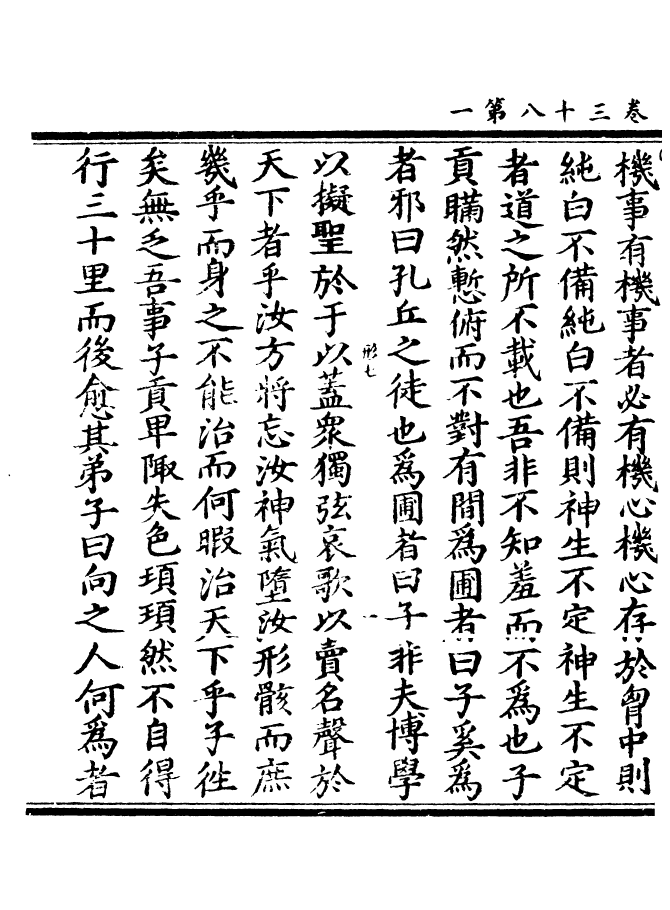 卷三十八第一
機事有機事者必有機心機心存於胷中則
純白不備純白不備則神生不定神生不定
者道之所不載也吾非不知羞而不爲也子
貢瞞然慙俯而不對有間爲圃者曰子奚爲
者邪曰孔丘之徒也爲圃者曰子非夫博學
以擬聖於于以蓋衆獨弦哀歌以賣名聲於
天下者乎汝方將忘汝神氣墮汝形骸而庶
幾乎而身之不能治而何暇治天下乎子徃
矣無乏吾事子貢卑陬失色頊頊然不自得
行三十里而後愈其弟子曰向之人何爲者